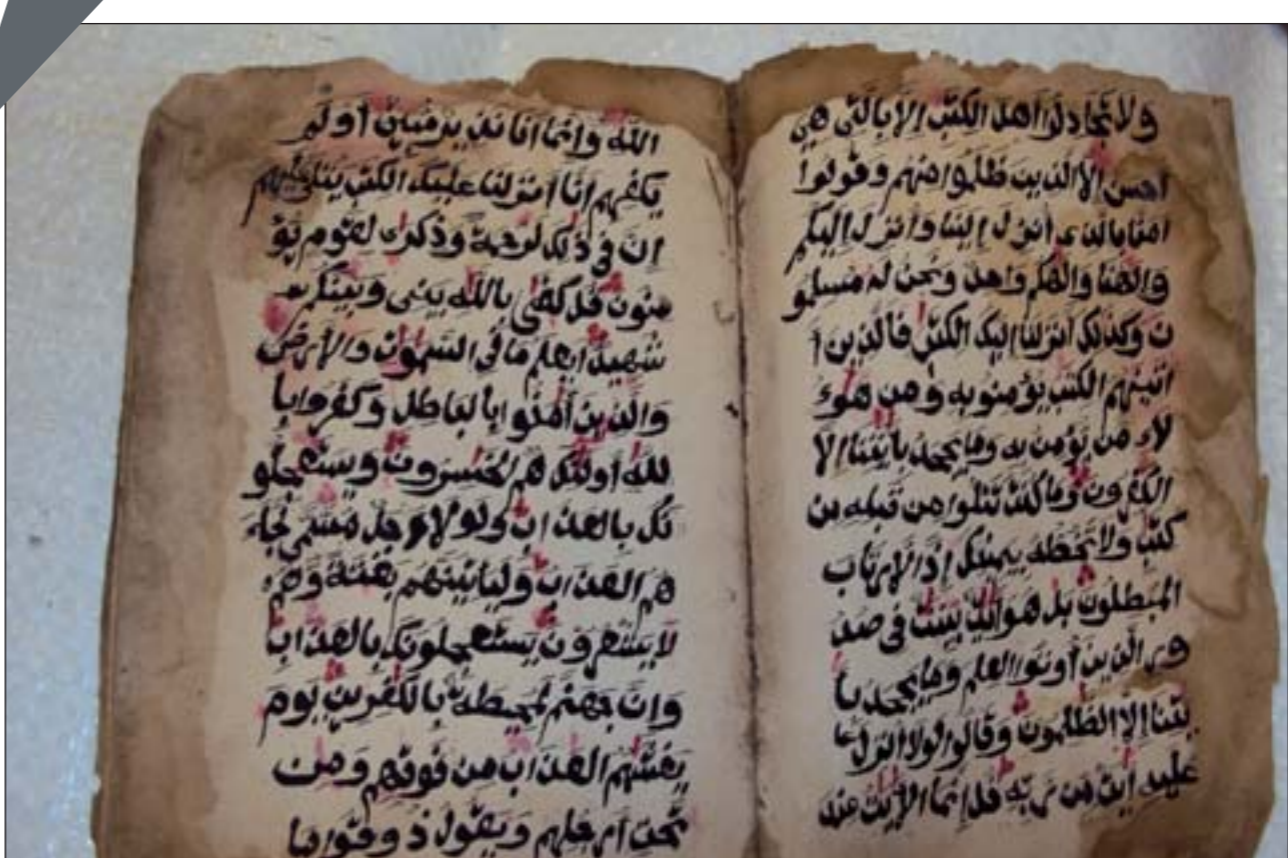 ولا تجادلوا اهل الكتب إلا بالتي هي
احسن إلا الذين ظلموا منهم وقولوا
امنا بالذي أنزل إلينا وأنزل إليكم
وإلهنا وإلهكم واحد ونحن له مسلمو
ن وكذلك أنزلنا إليك الكتب فالذين آ
اتينهم الكتب يؤمنون به ومن هؤ
لاء من يؤمن به وما يجحد بايتنا إلا
الكفرون وما كنت تتلوا من قبله من
كتب ولا تخطه بيمينك إذا لارتاب
المبطلون بل هو آيت بينت في صد
ور الذين أوتوا العلم وما يجحد بآ
يتنا إلا الظلمون وقالوا لولا أنزل
عليه آيت من ربه قل إنما الآيت عند
الله وإنما أنا نذير مبين أو لم
يكفهم أنا أنزلنا عليك الكتب يتلى عليهم
إن في ذلك لرحمة وذكرى لقوم يؤ
منون قل كفى بالله بيني وبينكم
شهيدا يعلم ما في السموت والأرض
والذين آمنوا بالباطل وكفروا با
لله أولئك هم الخسرون ويستعجلو
نك بالعذاب ولولا أجل مسمى لجاء
هم العذاب وليأتينهم بغتة وهم
لا يشعرون يستعجلونك بالعذاب
وإن جهنم لمحيطة بالكفرين يوم
يغشهم العذاب من فوقهم ومن
تحت أرجلهم ويقول ذوقوا ما